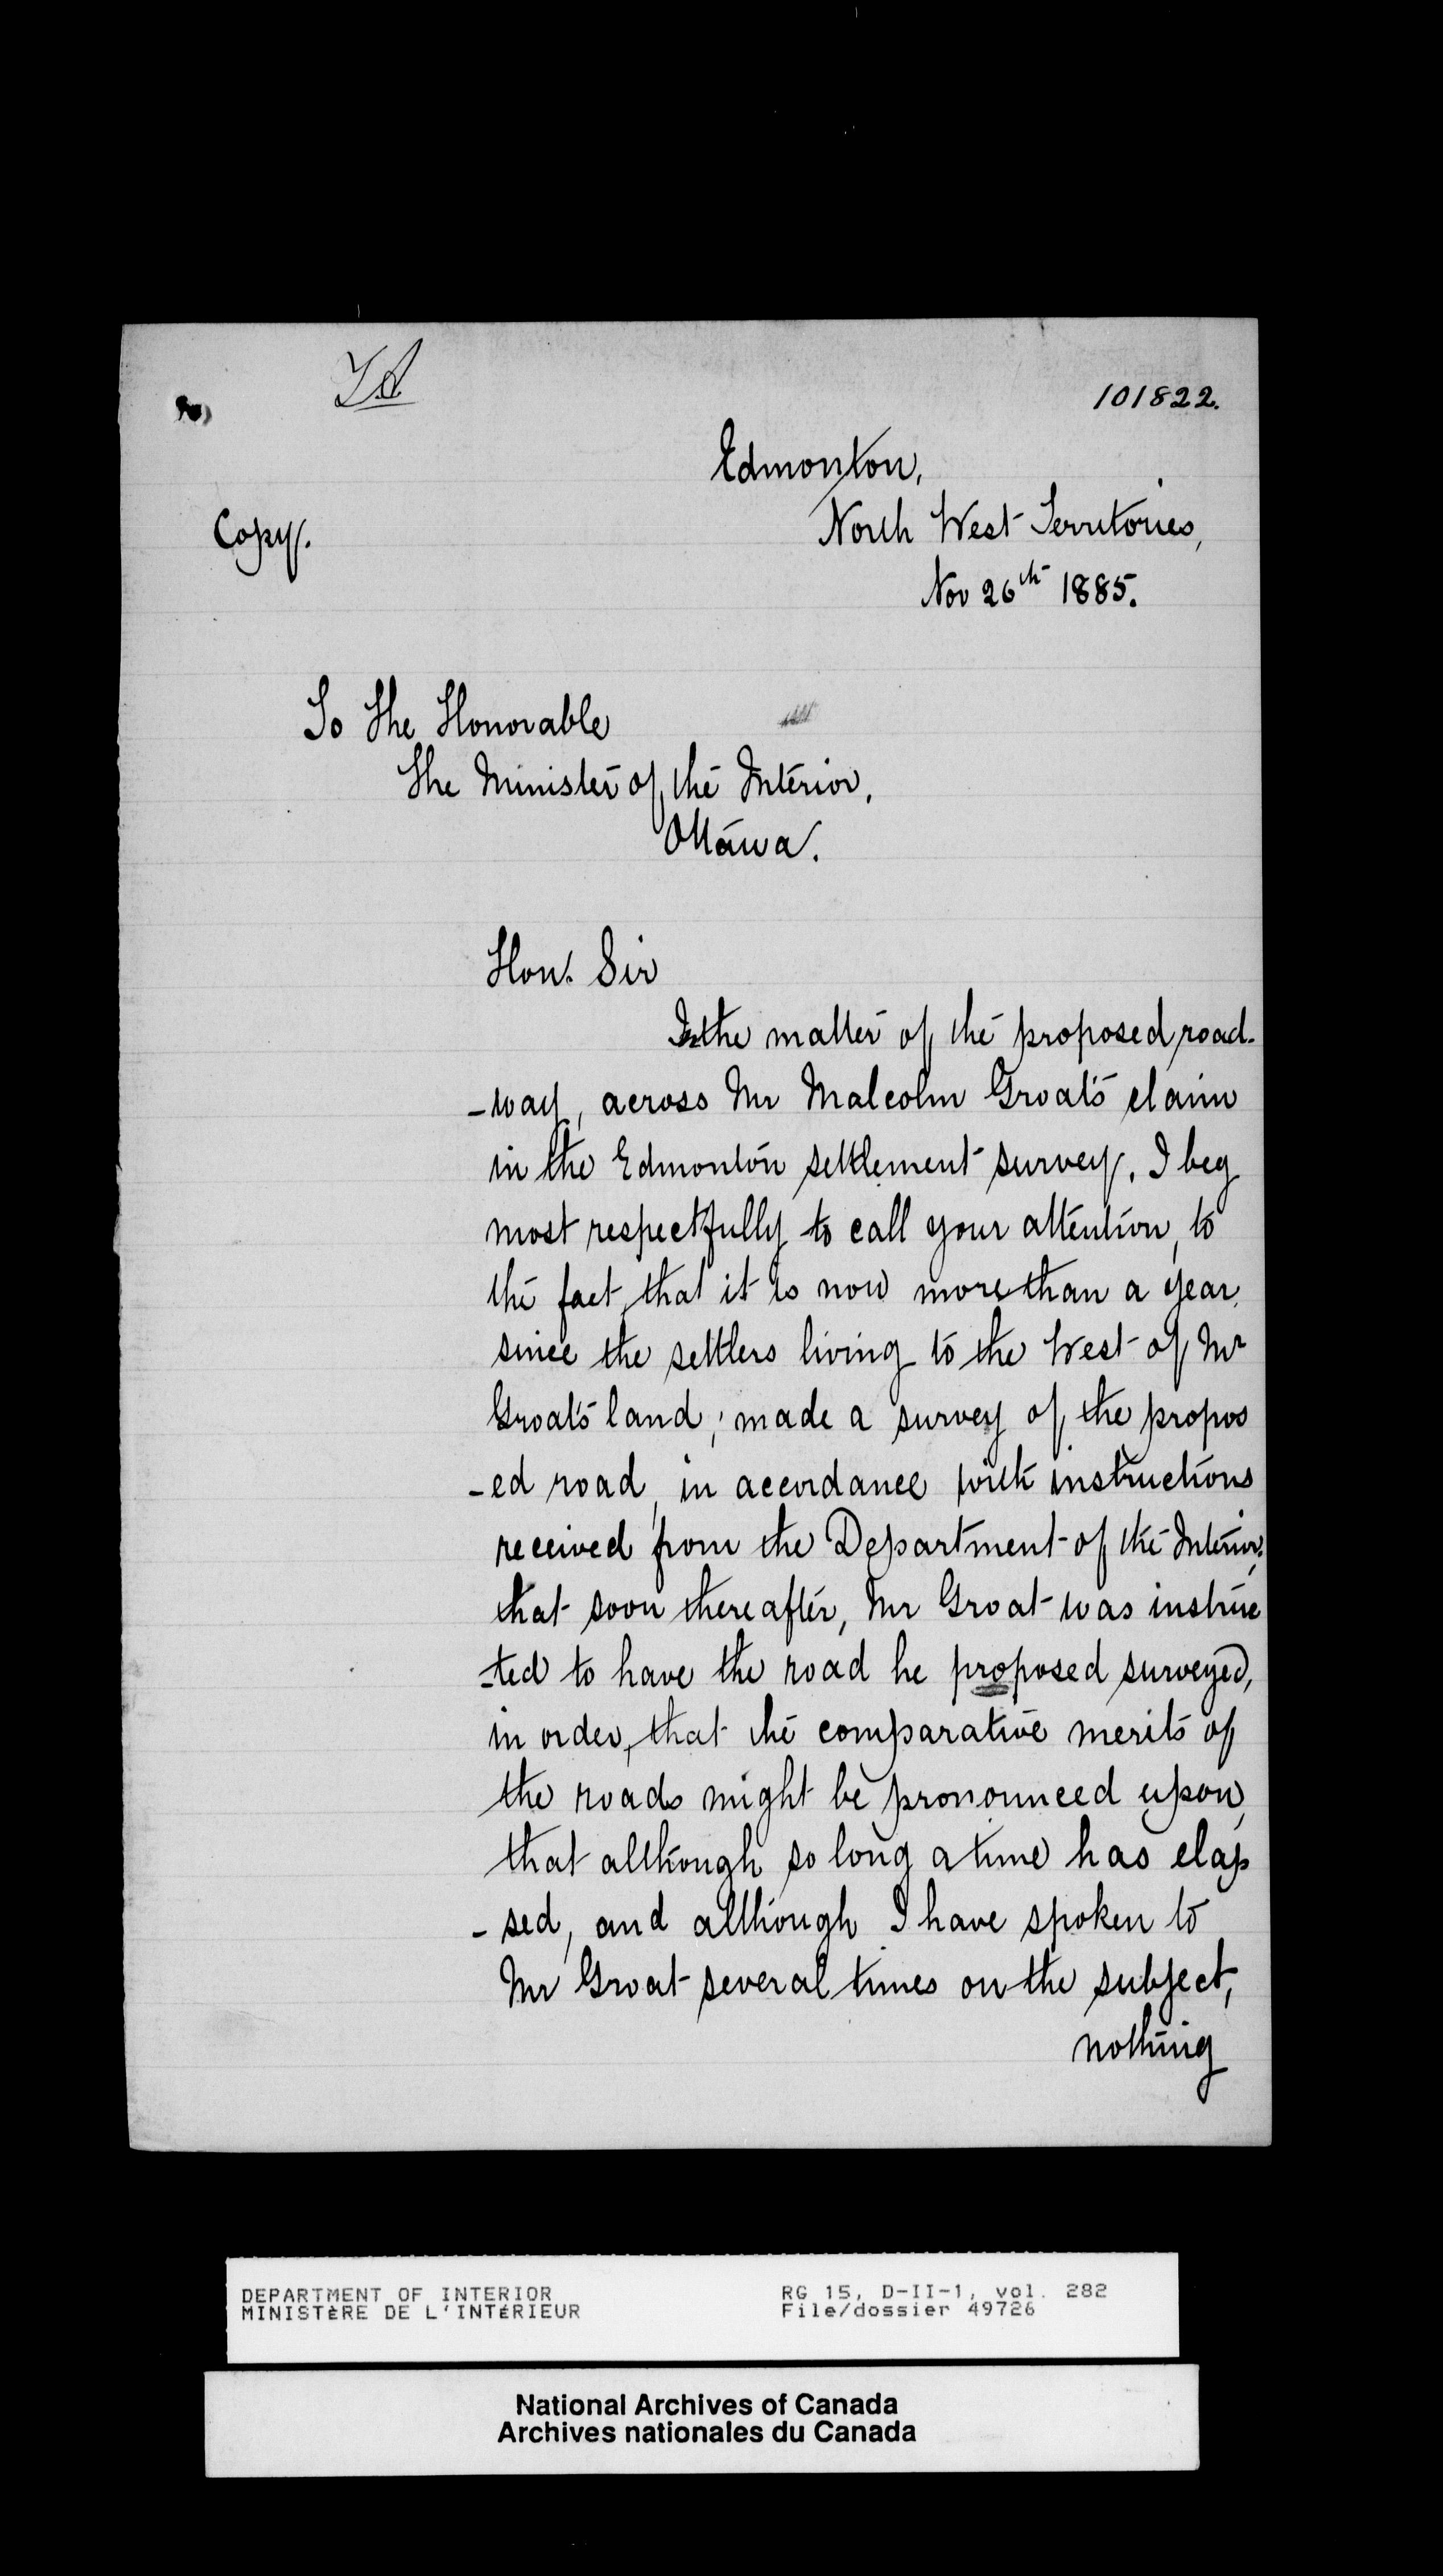 101822.
Edmonton,
Copy.
North West Territories,
Nov 26th 1885.
To The Honorable
The Minister of the Interior,
Ottawa.
Hon. Sir
In the matter of the proposed road-
-way, across Mr Malcolm Groat's claim
in the Edmonton settlement survey. I beg
most respectfully to call your attention, to
the fact, that it is now more than a year,
since the settlers living to the West of Mr
Groat's land; made a survey of the propos
-ed road, in accordance with instructions
received from the Department of the Interior,
that soon thereafter, Mr Groat was instruc
-ted to have the road he proposed surveyed,
in order, that the comparative merits of
the roads might be pronounced upon,
that although so long a time has elap
-sed, and although I have spoken to
Mr Groat several times on the subject,
nothing
DEPARTMENT OF INTERIOR
MINISTÈRE DE L'INTÉRIEUR
RG 15, D-II-1, vol. 282
File/dossier 49726
National Archives of Canada
Archives nationales du Canada